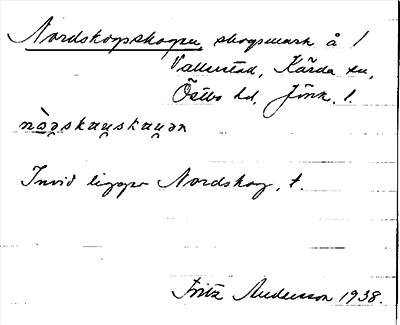 Nordskogskogen skogsmark å 1
Vallerstad, Kärda sn,
Östbo hd, Jönk. l.
Invid ligger Nordskog, t.
Fritz Andersson 1938.